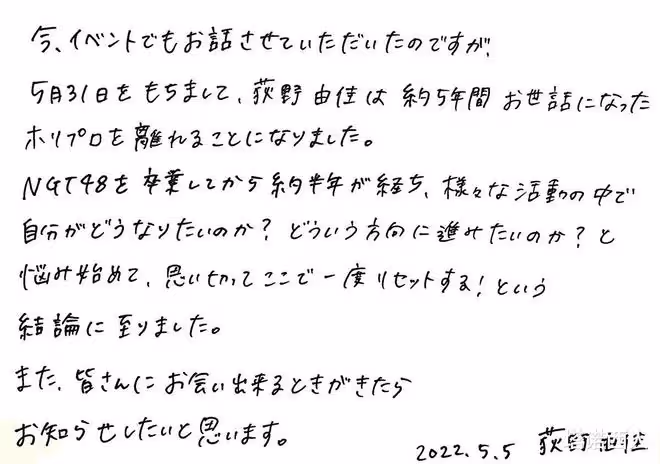 今、イベントでもお話させていただいたのですが、
5月31日をもちまして、荻野由佳は約5年間お世話になった
ホリプロを離れることになりました。
NGT48を卒業してから約半年が経ち、様々な活動の中で
自分がどうなりたいのか？どういう方向に進みたいのか？と
悩み始めて、思い切ってここで一度リセットする！という
結論に至りました。
また、皆さんにお会い出来るときがきたら
お知らせしたいと思います。
2022.5.5 荻野由佳